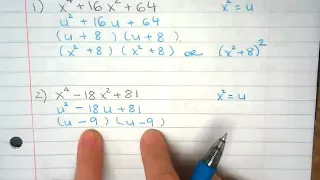 1) x⁴ + 16x² + 64 x² = u
u² + 16u + 64
(u + 8)(u + 8)
(x² + 8)(x² + 8) or (x² + 8)²
2) x⁴ - 18x² + 81 x² = u
u² - 18u + 81
(u - 9)(u - 9)